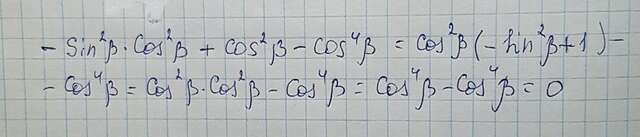 - Sin²β·Cos²β + cos²β - cos⁴β = cos²β(-sin²β+1) -
- Cos⁴β = Cos²β·Cos²β - Cos⁴β = Cos⁴β - Cos⁴β = 0